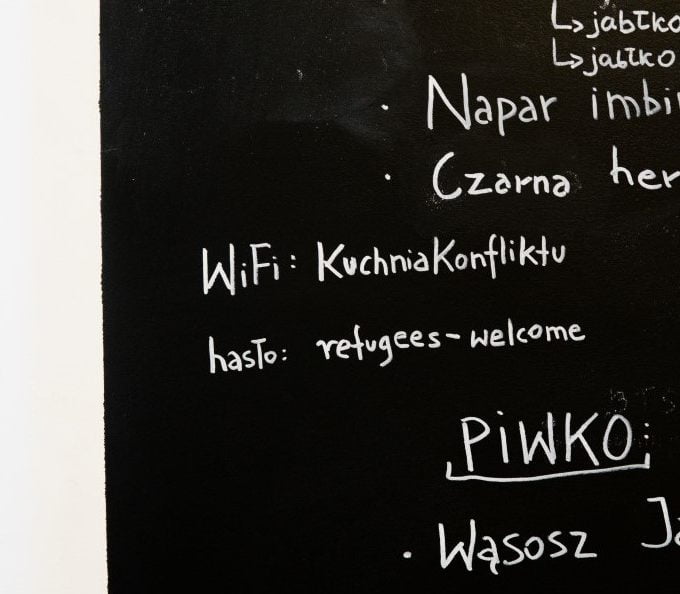 ↳ jabłko
↳ jabłko
· Napar
· Czarna
WiFi: KuchniaKonfliktu
hasło: refugees-welcome
PiWKO:
· Wąsosz